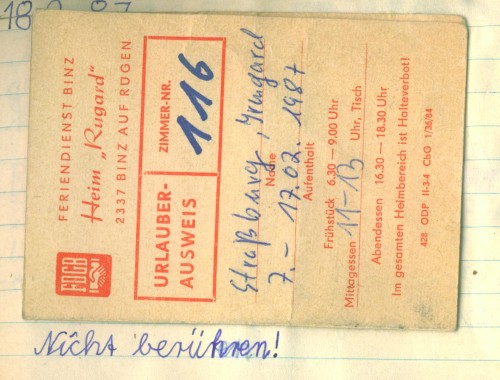 18.2.87
FDGB
FERIENDIENST BINZ
Heim „Rugard"
2337 BINZ AUF RÜGEN
URLAUBER-
AUSWEIS
ZIMMER-NR.
116
Straßburg, Irmgard
Name
7. – 17.02.1987
Aufenthalt
Frühstück 6.30 – 9.00 Uhr
Mittagessen 11-13 Uhr, Tisch
Abendessen 16.30 – 18.30 Uhr
Im gesamten Heimbereich ist Halteverbot!
428 ODP II-3-4 CbG 1/36/84
Nicht berühren!